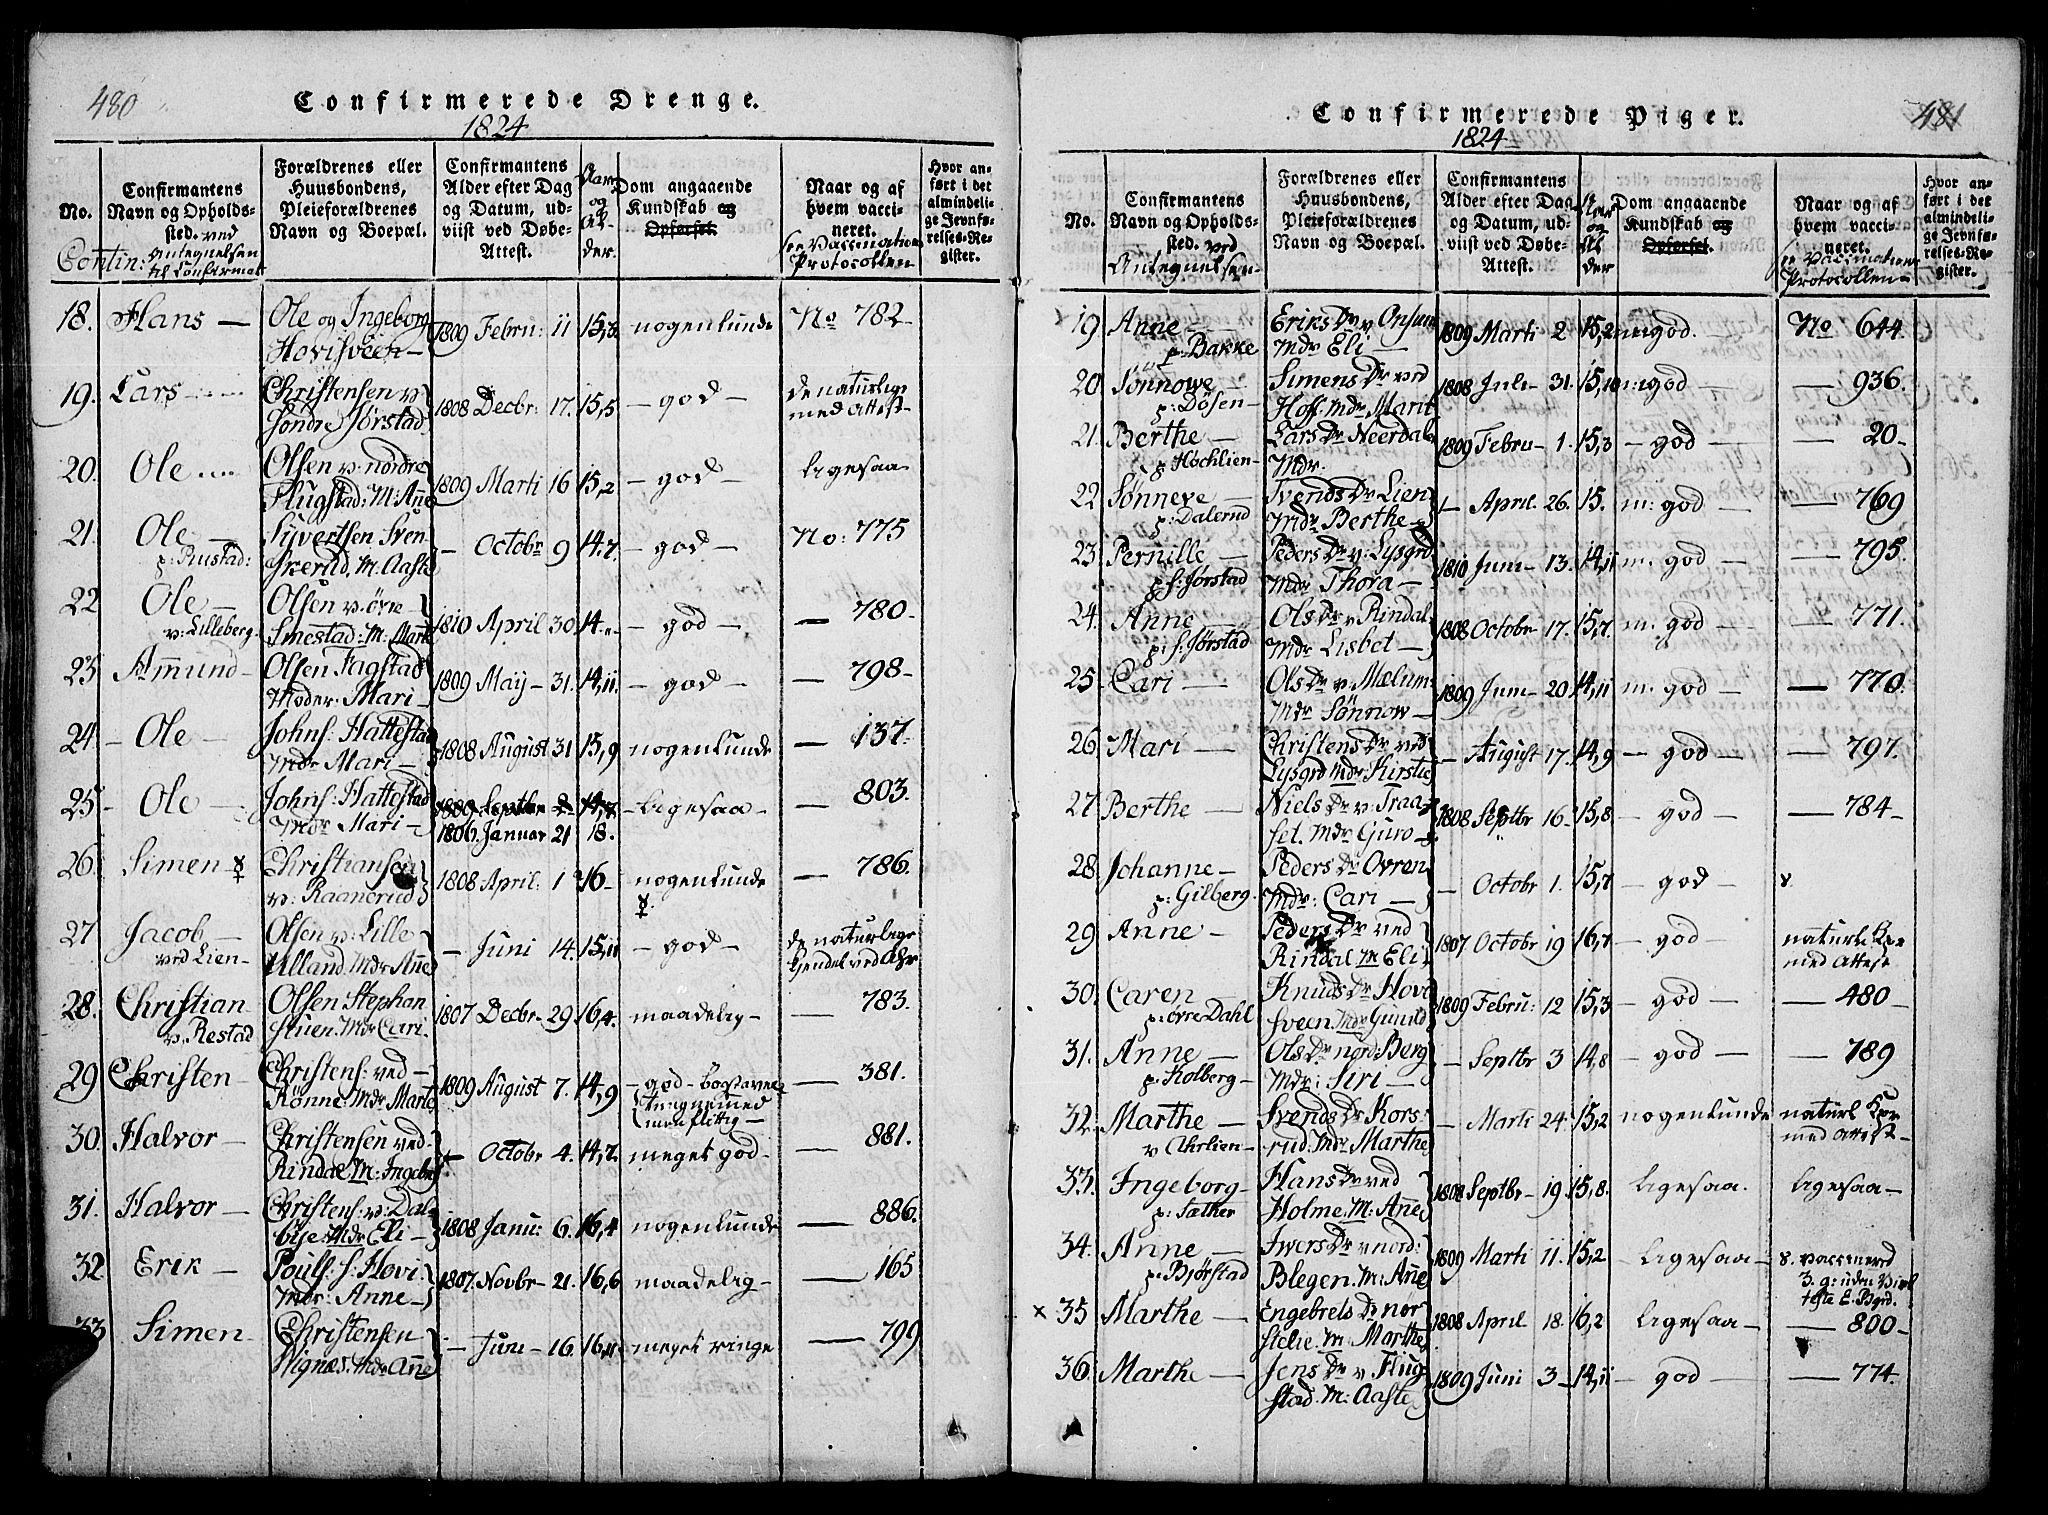 480
Confirmerede Drenge.
1824
No.
Contin:
Confirmantens Navn og Opholds-sted. ved Antegnelsen til Confirmat
Forældrenes eller Huusbondens, Pleieforældrenes Navn og Boepæl.
Confirmantens Alder efter Dag og Datum, ud-viist ved Døbe-Attest.
Aar og Al-der.
Dom angaaende Kundskab og Opførsel.
Naar og af hvem vacci-neret. see Vaccinations Protocollen
Hvor an-ført i det almindeli-ge Jevnfø-relses-Re-gister.
18. Hans — Ole og Ingeborg 1809 Febru: 11 15,3 nogenlunde No 782
Hovisveen —
19. Lars — Christensen v 1808 Decbr: 17. 15,5 — god — de naturlige
Søndre Jørstad. med Attest
20. Ole Olsen v: nordre 1809 Marti 16 15,2 — god — ligesaa
Flugstad: M: Añe
21. Ole — Syvertsen Sven — Octobr 9 14,7 — god — No: 775
p: Rustad: skerud. M: Aaste
22 Ole — Olsen v: övre 1810 April 30. 14 — god — — 780
v: Lilleberg. Smestad: M: Marte
23 Amund — Olsen Fagstad 1809 May — 31. 14,11. — god — — 798
Moder: Mari —
24 — Ole — Johns: Hattestad 1808 August 31 15,9 nogenlunde — 137.
Mdr Mari —
25 — Ole — Johns: Hattestad 1809 Septbr 2 14,7 — ligesaa — — 803.
Mdr Mari — 1806. Januar 21 18.
26 Simen Christiansen 1808 April: 1 16 — nogenlunde — 786.
v: Raanerud
27 Jacob — Olsen v: Lille — Juni 14. 15,11 — god — de naturlige
ved Lien — Ulland. Mdr Añe kjendel ved Ahr
28. Christian Olsen Stephan 1807 Decbr — 29 16,4. maadelig — — 783.
v. Restad stuen. Mdr Cari.
29 Christen — Christens: ved — 1809 August 7. 14,9 — god — bogstavel — 381.
Rönne: Mdr Marte men flittig —
30. Halvor — Christensen ved — Octobr 4. 14,7. meget god — — 881.
Rindal M: Ingeborg
31. Halvor — Christens: v: Dal 1808 Janu: 6. 16,4 nogenlunde — 886.
bye: Mdr Eli —
32 Erik — Pouls: s: Hovi 1807. Novbr — 21. 16,6 maadelig — — 165
Mdr: Anne —
33 Simen — Christensen — Juni — 16. 16,11 meget ringe — 799
Vignæs: Mdr Añe
481
Confirmerede Piger.
1824
No.
Confirmantens Navn og Opholds-sted. ved Antegnelsen
Forældrenes eller Huusbondens, Pleieforældrenes Navn og Boepæl.
Confirmantens Alder efter Dag og Datum, ud-viist ved Døbe-Attest.
Aar og Al der
Dom angaaende Kundskab og Opførsel.
Naar og af hvem vacci-neret. se Vaccinations Protocollen
Hvor an-ført i det almindeli-ge Jevnfø-relses-Re-gister.
19 Anne — Eriks Dr v Onsum 1809 Marti 2 15,2 m: god. — No 644
p: Bakke Mdr Eli —
20 Sönnowe — Simens Dr ved 1808 Juli — 31. 15,10 m: god — — 936.
p: Dösen — Hoff: Mdr Marit
21. Berthe — Lars Dr Neerdal 1809 Febru — 1. 15,3 — god — — 20 —
p: Höchlien — Mdr.
22 Sönneve — Ivends Dr Lien — April. 26. 15. m: god — — 769
p: Dalerud Mdr Berthe —
23. Pernille — Peders Dr v: Lysgrd 1810 Juni — 13. 14,11 m: god — — 795.
p s: Jörstad Mdr Thora —
24. Anne — Ols Dr v Rindal 1808 Octobr — 17. 15,7. m: god — — 771.
p: s: Jörstad Mdr Lisbet —
25 Cari — Ols Dr v: Mælum 1809 Juni — 20 14,11 m: god — — 770.
Mdr Sönnow —
26. Mari — Christens Dr ved — August 17. 14,9 — god — — 797.
Lysgrd Mdr Kirstie
27. Berthe — Niels Dr v: Traa 1808 Septbr 16 — 15,8 — god — — 784 —
set. Mdr Guro —
28. Johanne — Peders Dr Ovren — Octobr 1. 15,7 — god —
p: Gilberg. Mdr: Cari —
29 Anne — Peders Dr ved 1807 Octobr 19 16,7 — god — naturl Kpr
Rindal M Eli med Attest
30. Caren — Knuds Dr Hovi 1809 Febru: 12 15,3 — god — — 480 —
p: övre Dahl sveen. Mdr Gunild
31. Anne — Ols Dr nord: Berg — Septbr 3 14,8 — god — — 789
p: Kolberg — Mdr: Siri —
32. Marthe — Svends Dr Kors — Marti — 24. 15,2 nogenlunde naturl Kpr
v Ahrlien — rud. Mdr Marthe med Attest —
33. Ingeborg — Hans Dr ved 1808 Septbr — 19. 15,8. ligesaa. ligesaa —
p: Sæther Holme. M: Añe
34. Anne — Iwers Dr v nord: 1809 Marti 11. 15,2 ligesaa — vaccinered
p: Björstad Blegen. M: Añe 3 g: uden Virk
teste E. Bgrd.
x 35 Marthe — Engebrets Dr nör 1808 April 18. 16,2 ligesaa — — 800 —
stelie M: Marthe
36. Marthe — Jens Dr v Flug 1809 Juni 3 — 14,11 — god — — 774.
stad. M: Aaste